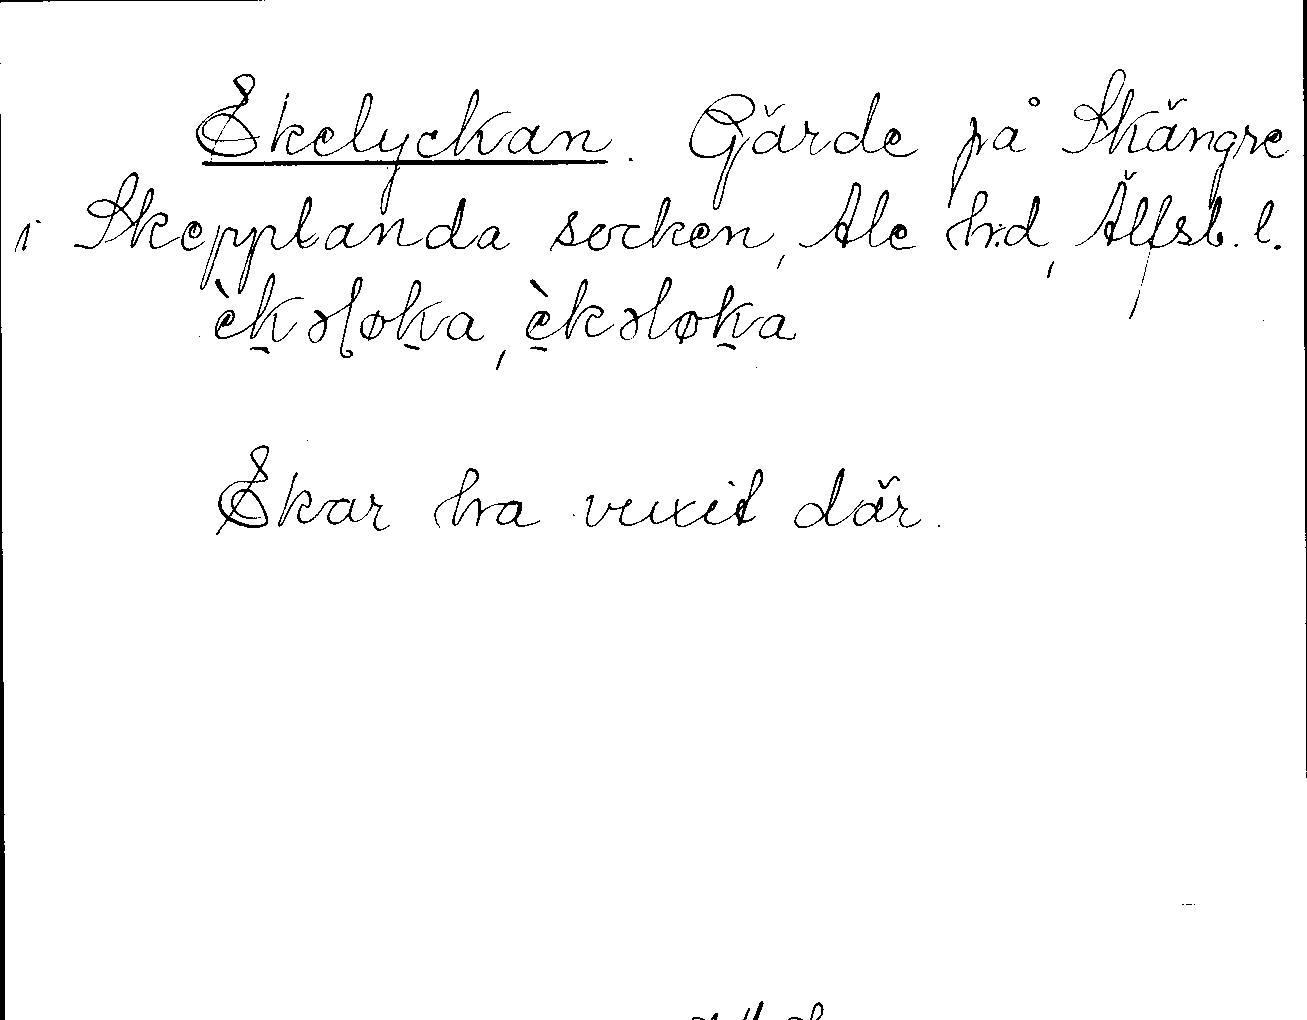 Ekelyckan. Gärde på Skängre
i Skepplanda socken, Ale hrd, Älfsb. l.
è̱kəɭøḵa, è̱kəløḵa
Ekar ha vuxit där.